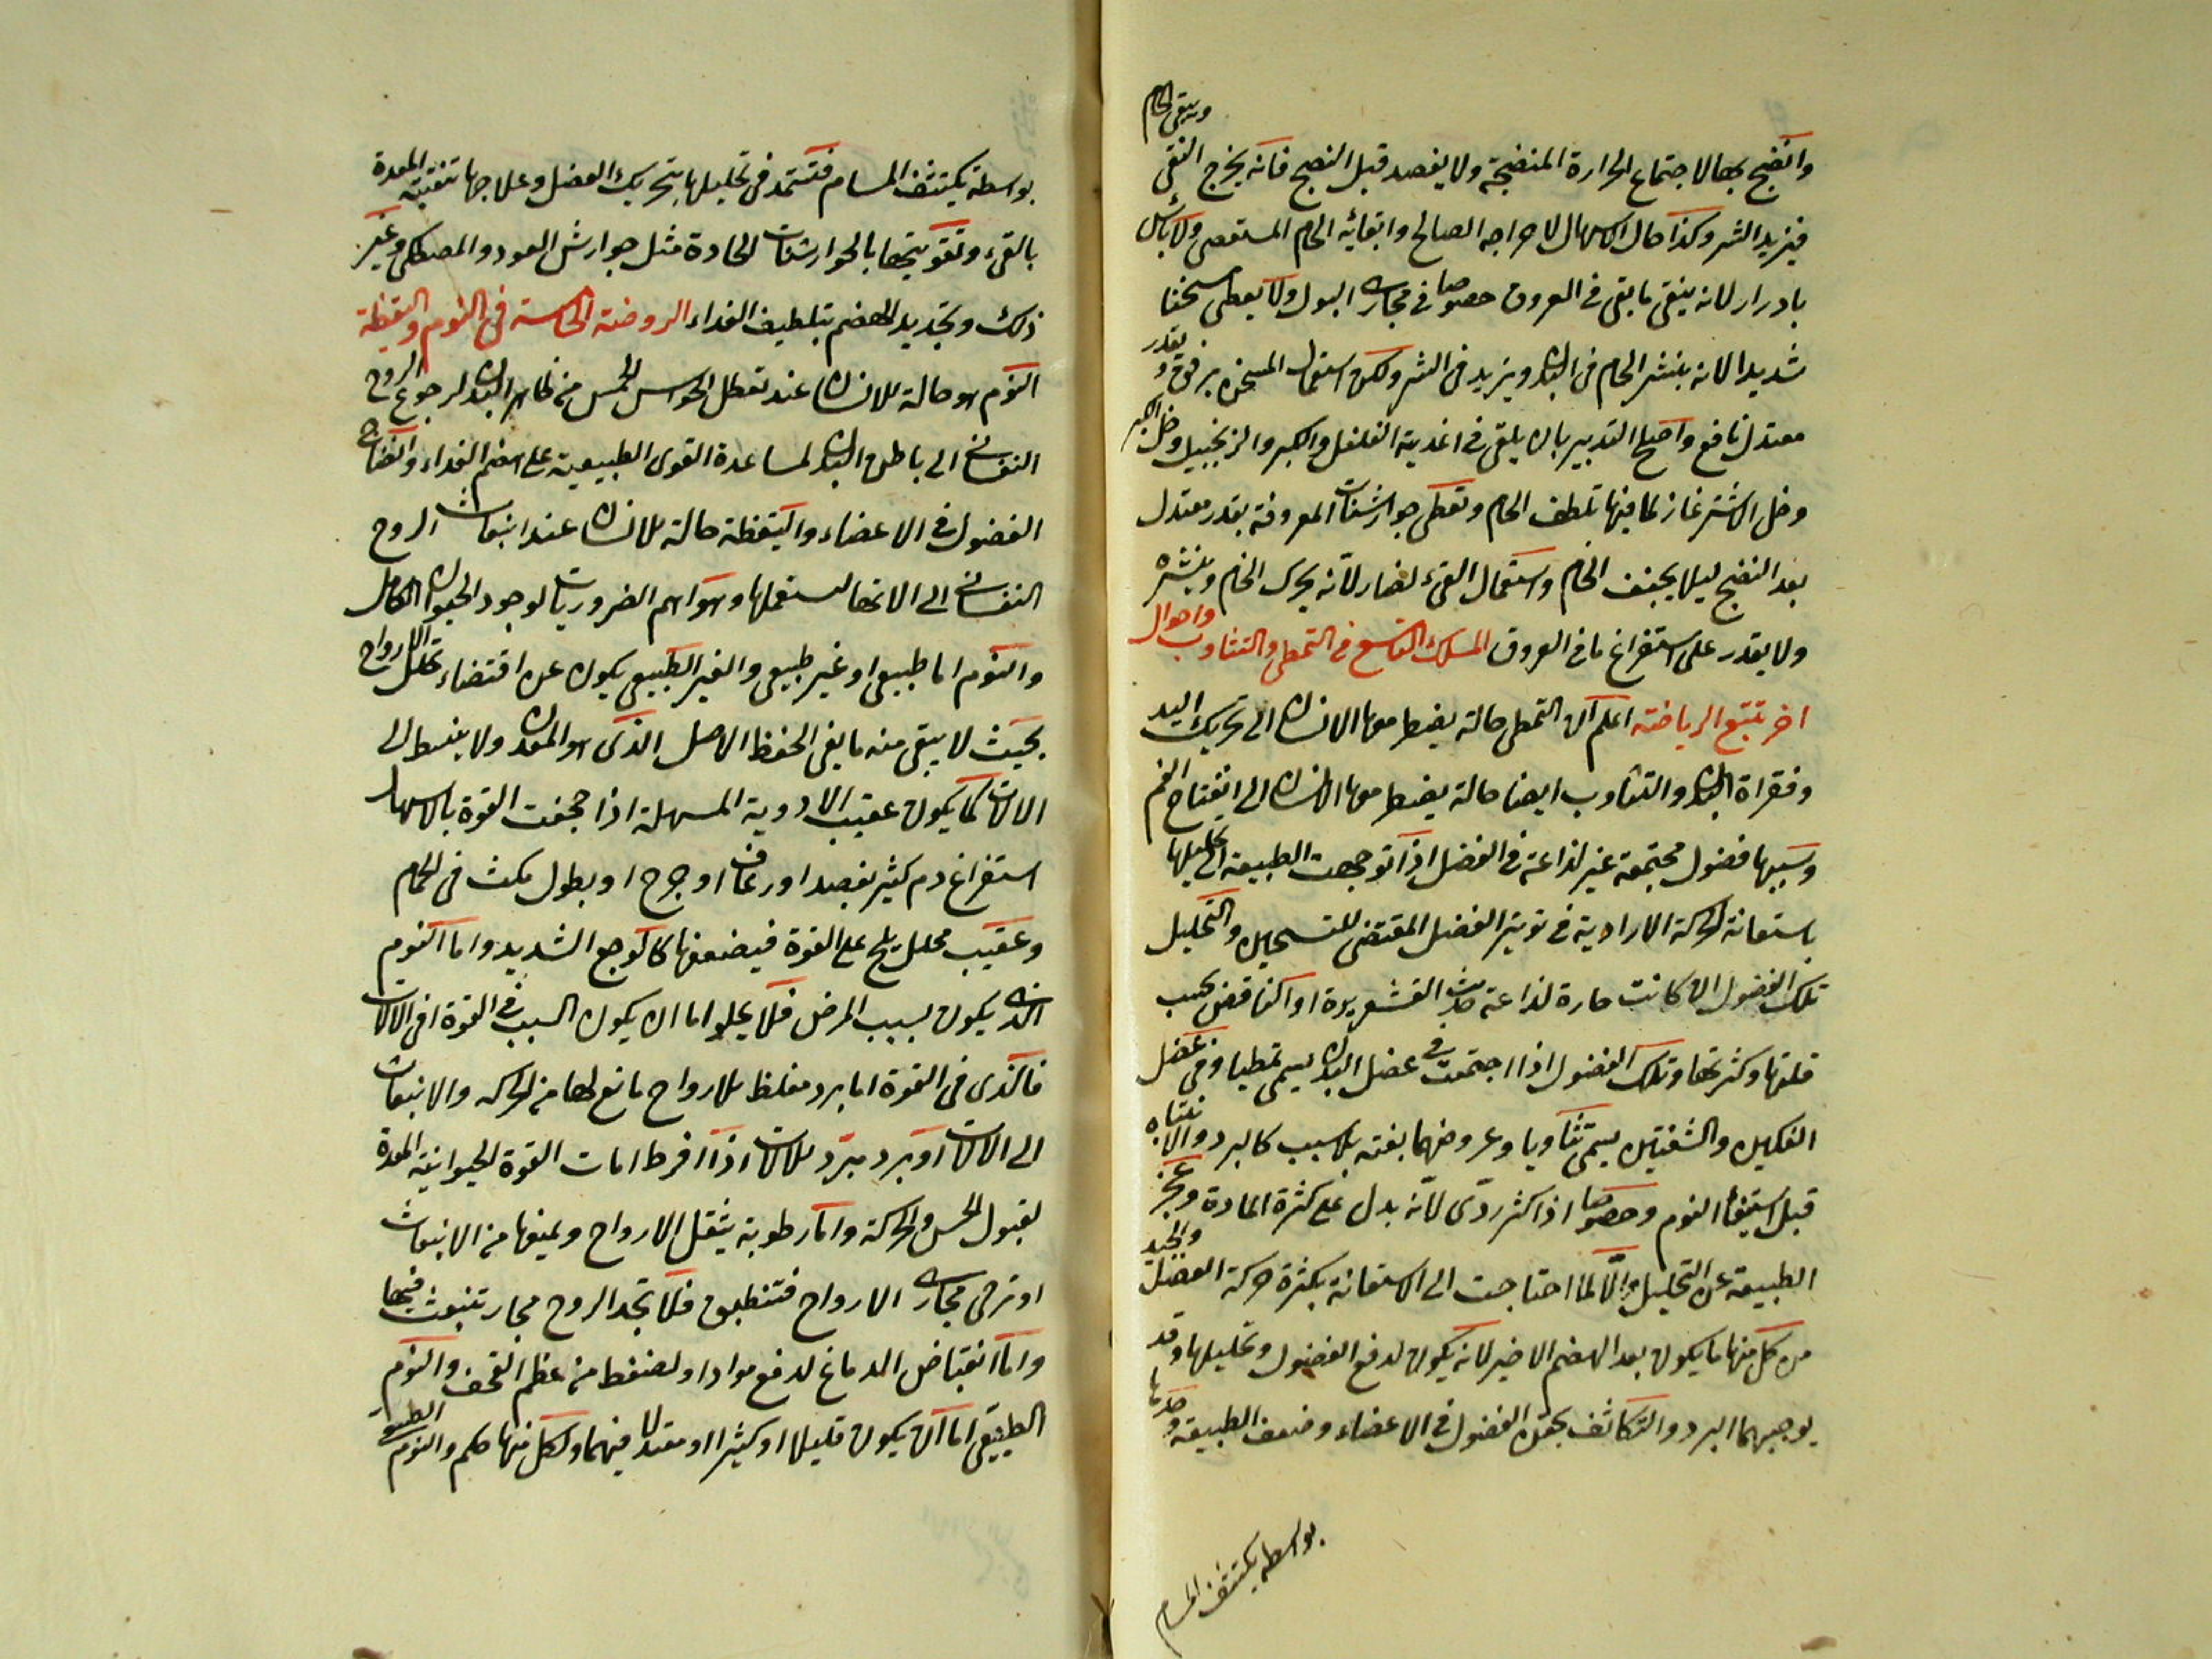 وانضج بها لاجتماع الحرارة المنضجة ولا يفصد قبل النضج فانه يخرج النقى ويبقى الخام
فيزيد الشر وكذا حال الاسهال لاخراجه الصالح وابقائه الخام المستقصى ولا باس
بادرار لانه ينقى ما بقى فى العروق خصوصا فى مجارى البول ولا يعطى مسخنا
شديدا لانه ينشر الخام فى البدن ويزيد فى الشر ولكن استعمال المسخن برفق وقدر
معتدل نافع واصلح التدبير بان يلقى فى اغذيته الفلفل والكبر والزنجبيل وخل الكبر
وخل الاشترغاز لما فيها تلطف الخام وتعطى جوارشنات المعروفة بقدر معتدل
بعد النضج ليلا يجفف الخام واستعمال القىء لضار لانه يحرك الخام وينشره
ولا يقدر على استفراغ ما فى العروق المسلك التاسع فى التمطى والتثاوب واحوال
اخر تتبع الرياضة اعلم ان التمطى حالة يضطر معها الانسان الى تحريك اليد
وفقراة البدن والتثاوب ايضا حالة يضطر معها الانسان الى انفتاح الفم
وسببها فضول مجتمعة غير لذاعة فى العضل اذا توجهت الطبيعة الى تحليلها
باستعانة الحركة الارادية فى توتير العضل المقتضى للتسخين والتحليل
تلك الفضول ان كانت حارة لذاعة حدث القشعريرة او النافض بحسب
قلتها وكثرتها وتلك الفضول اذا اجتمعت فى عضل البدن يسمى تمطيا وفى عضل
الفكين والشفتين يسمى تثاوبا وعروضهما بغتة بلا سبب كالبرد والانتباه
قبل استيفاء النوم وخصوصا اذا كثر ردى لانه يدل على كثرة المادة وعجز
الطبيعة عن التحليل والا لما احتاجت الى الاستعانة بكثرة حركة العضل والجيد
من كل منها ما يكون بعد الهضم الاخير لانه يكون لدفع الفضول وتحليلها وقد
يوجبهما البرد والتكاثف بحقن الفضول فى الاعضاء وضعف الطبيعة
بواسطة يكتثف المسام
بواسطة يكتثف المسام فتستمد فى تحليلها بتحريك العضل وعلاجها تنقية المعدة
بالقىء وتقويتها بالجوارشنات الحادة مثل جوارش العود والمصطكى وغير
ذلك وتجديد الهضم بتلطيف الغداء الروضة الخامسة فى النوم واليقظة
النوم هو حالة للانسان عند تعطل الحواس الخمس من ظاهر البدن لرجوع الروح
النفسانى الى باطن البدن لمساعدة القوى الطبيعية على هضم الغداء وانضاج
الفضول فى الاعضاء واليقظة حالة للانسان عند انبعاث الروح
النفسانى الى الاتها لتستعملها وهو اهم الضروريات لوجود الحيوان الكامل
والنوم اما طبيعى او غير طبيعى والغير الطبيعى يكون عن اقتضاء تحلل الارواح
بحيث لا يبقى منه ما يفى الحفظ الاصل الذى هو المعدن ولا ينبسط الى
الالات كما يكون عقيب الادوية المسهلة اذا جحفت القوة بالاسهال
استفراغ دم كثير بفصد او رعاف او جرح او بطول مكث فى الحمام
وعقيب محلل يلح على القوة فيضعفها كالوجع الشديد واما النوم
الذى يكون بسبب المرض فلا يخلو اما ان يكون السبب فى القوة او فى الالات
فالذى فى القوة اما برد مغلظ للارواح مانع لها من الحركه والانبعاث
الى الالات او برد مبرد للالات اذا افرط امات القوة الحيوانية المعدة
لقبول الحس والحركة واما رطوبة يثقل الارواح ويمنعها من الانبعاث
او ترخى مجارى الارواح فتنطبق فلا تجد الروح مجار تنبعث فيها
واما انقباض الدماغ لدفع مواد او لضغط من عظم القحف والنوم
الطبيعى اما ان يكون قليلا او كثيرا او معتدلا فيهما ولكل منها حكم والنوم الطبيعى